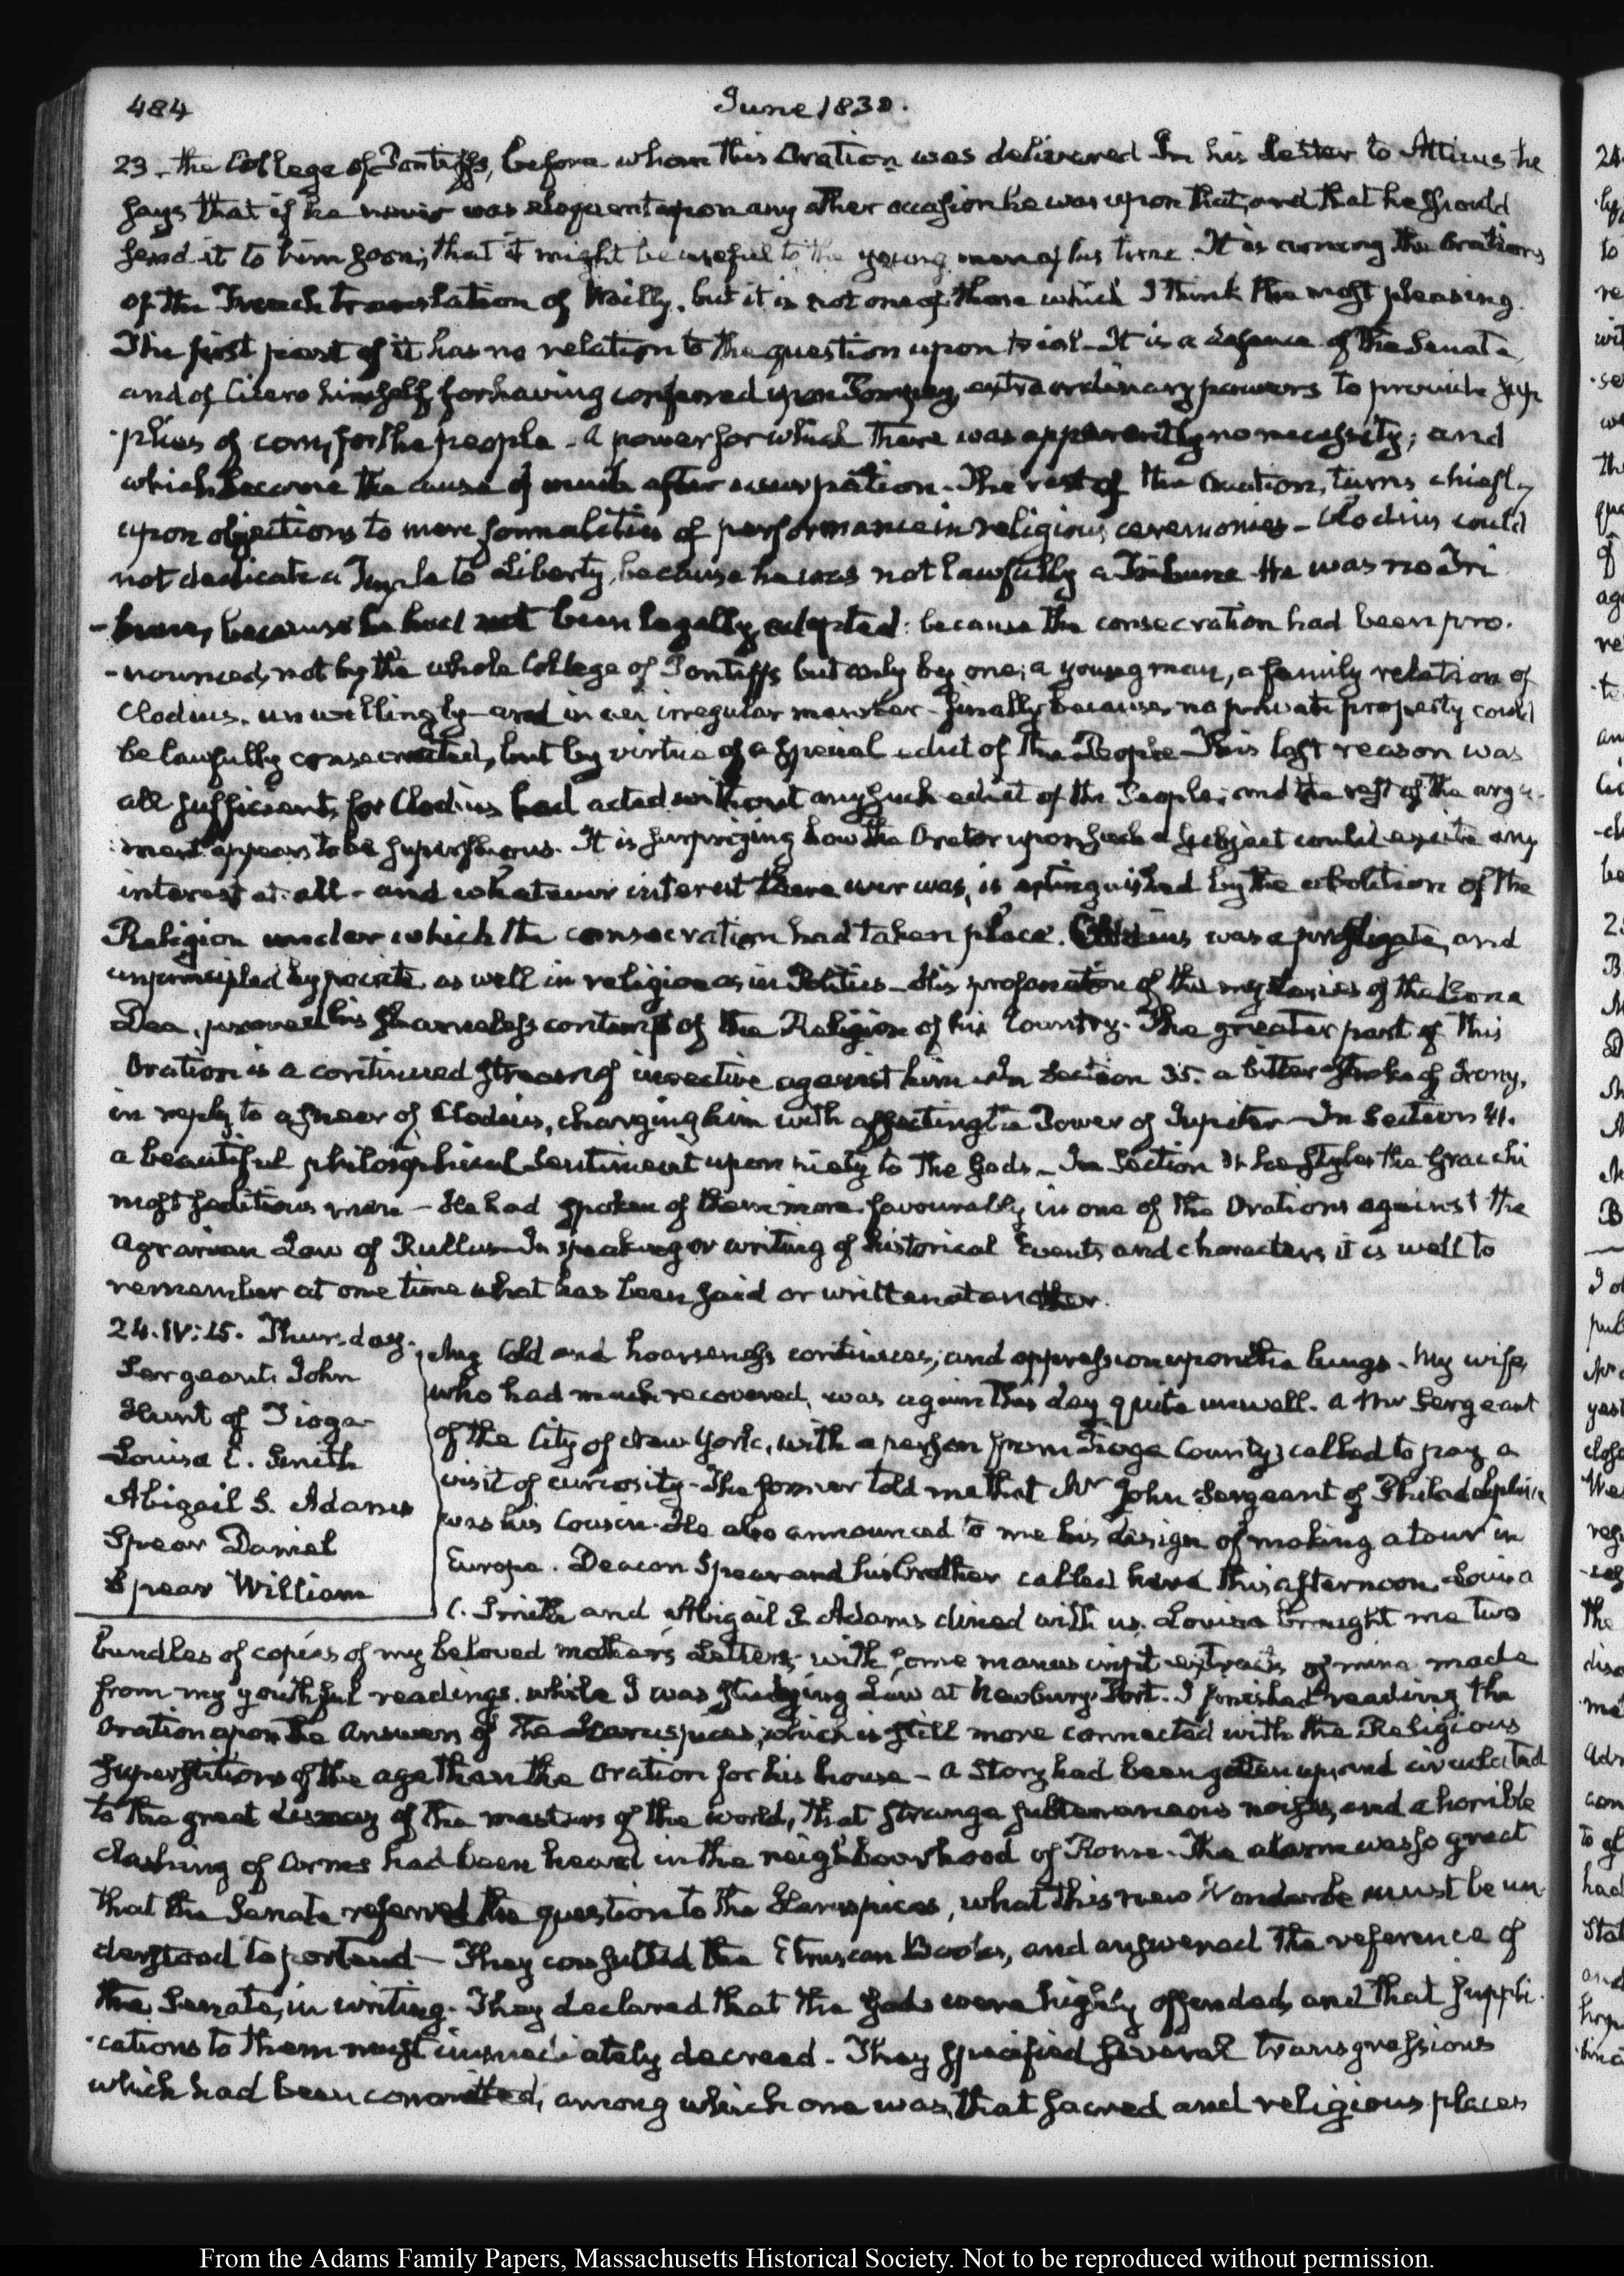 484
June 1830.
23. the College of Pontiffs, before whom this Oration was delivered In his Letter to Atticus he
says that if he never was eloquent upon any other occasion he was upon that, and that he should
send it to him soon; that it might be useful to the young men of his time. It is among the Orations
of the French translation of Wailly, but it is not one of those which I think the most pleasing.
The first part of it has no relation to the question upon trial - It is a defence of the Senate,
and of Cicero himself, for having conferred upon Pompey, extraordinary powers to provide sup
-plies of corn, for the people - a power for which there was apparently no necessity; and
which became the cause of much after usurpation. The rest of the Oration, turns chiefly
upon objections to mere formalities of performance in religious ceremonies - Clodius could
not dedicate a Temple to Liberty, because he was not lawfully a Tribune - He was no Tri
-bune, because he had not been legally adopted: because the consecration had been pro.
-nounced, not by the whole College of Pontiffs but only by one; a young man, a family relation of
Clodius, unwillingly and in an irregular manner - finally because, no private property could
be lawfully consecrated, but by virtue of a special edict of the People - This last reason was
all sufficient, for Clodius had acted without any such edict of the People; and the rest of the argu-
-ment appears to be superfluous. It is surprizing how the Orator upon such a subject could excite any
interest at all - and whatever interest there ever was, is extinguished by the abolition of the
Religion under which the consecration had taken place. Clodius was a profligate, and
unprincipled hypocrite, as well in religion as in Politics - His profanation of the mysteries of the Bona
Dea, proved his shameless contempt of the Religion of his Country. The greater part of this
Oration is a continued stream of invective against him - In Section 35. a bitter stroke of Irony,
in reply to a sneer of Clodius, charging him with affecting the Power of Jupiter - In Section 41.
a beautiful philosophical sentiment upon piety to the Gods - In Section he styles the Gracchi
most seditious men - He had spoken of them more favourably in one of the Orations against the
Agrarian Law of Rullus - In speaking or writing of historical Events and characters, it is well to
remember at one time what has been said or written at another.
24. IV: 15. Thursday.
Sergeant. John
Hunt of Tioga
Louisa C. Smith
Abigail S. Adams
Spear Daniel
Spear William
My Cold and hoarseness continues; and oppression upon the lungs. My wife,
who had much recovered, was again this day quite unwell. a Mr Sergeant
of the City of New York, with a person from Tioga County, called to pay a
visit of curiosity - The former told me that Mr John Sergeant of Philadelphia
was his Cousin. He also announced to me his design of making a tour in
Europe. Deacon Spear and his brother called here this afternoon. Louisa
C. Smith and Abigail S. Adams dined with us. Louisa brought me two
bundles of copies of my beloved mother's Letters, with some manuscript extracts of mine made
from my youthful readings, while I was studying Law at Newbury-Port. I finished reading the
Oration upon the Answers of the Haruspices, which is still more connected with the Religious
Superstitions of the age than the Oration for his house - a Story had been gotten up, and circulated
to the great dismay of the masters of the world, that strange subterraneous noises, and a horrible
clashing of Arms had been heard in the neighbourhood of Rome. The alarm was so great
that the Senate referred the question to the Haruspices, what this new Wonder must be un
derstood to portend - They consulted the Etruscan Books, and answered the reference of
the Senate, in writing. They declared that the Gods were highly offended, and that suppli.
-cations to them must immediately decreed - They specified several transgressions
which had been committed; among which one was, that sacred and religious places
From the Adams Family Papers, Massachusetts Historical Society. Not to be reproduced without permission.